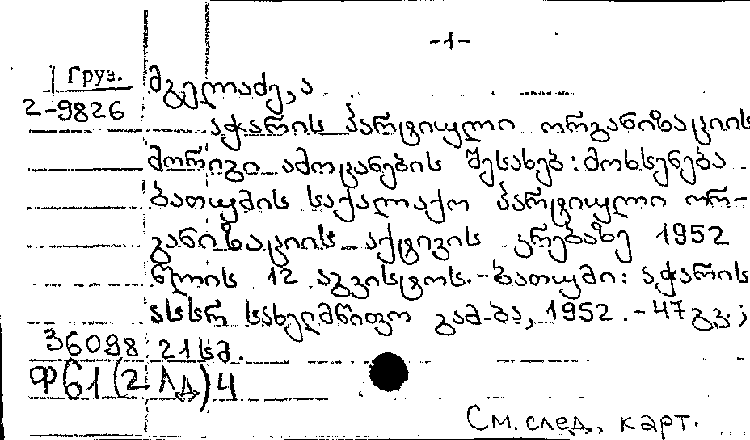 -1-
Груз. მგელაძე, ა
2-9826
აჭარის პარტიული ორგანიზაციის
მორიგი ამოცანების შესახებ: მოხსენება
ბათუმის საქალაქო პარტიული ორ-
განიზაციის აქტივის კრებაზე 1952
წლის 12 აგვისტოს.-ბათუმი: აჭარის
ასსრ სახელმწიფო გამ-ბა, 1952.-47 გვ;
36098 21 სმ.
Ф61(2)4
См. след. карт.